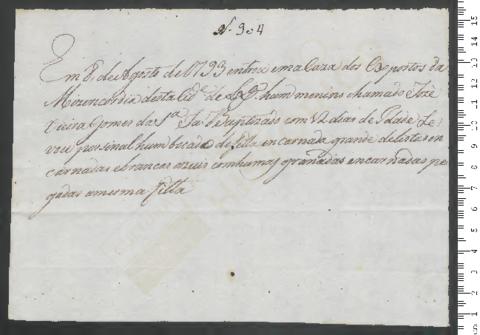 N. 904
Em 8 de Agosto de 1793 entrou em a Caza dos Expostos da
Mizericordia desta Cid.e de hum menino chamado Joze
Vieira Gomes com 12 dias de Idade
por sinal hum bocado de fitta encarnada grande de listas en
carnadas e brancas azuis com humas granadas encarnadas pe
gadas a mesma fitta